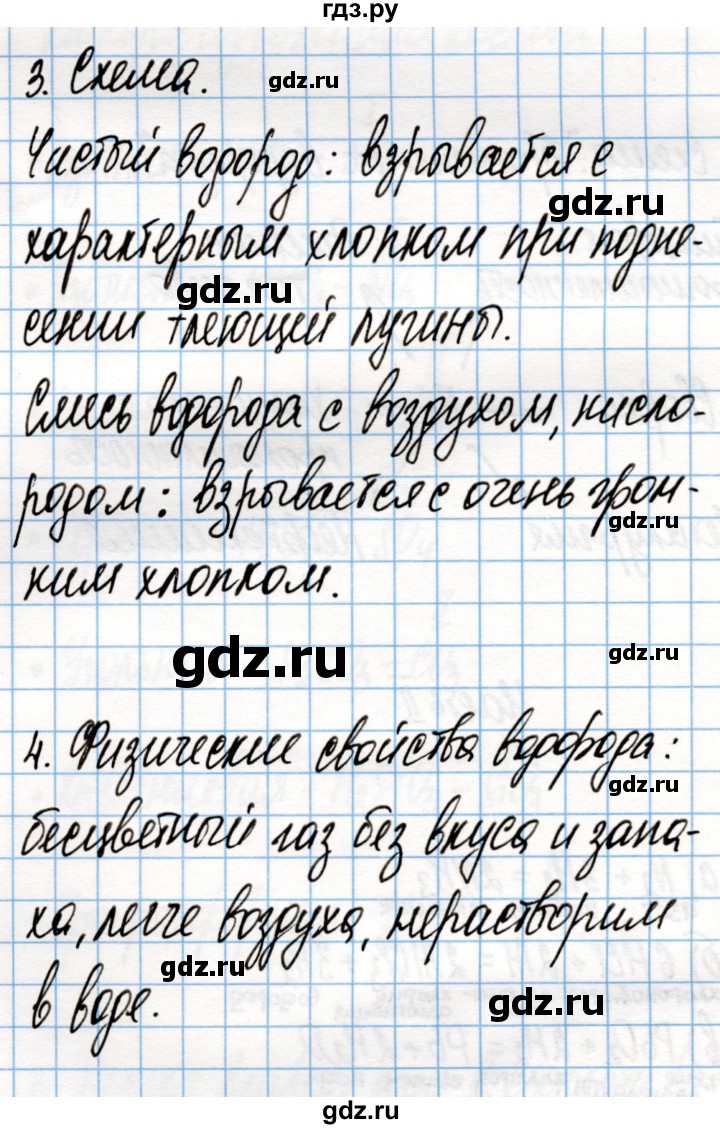 гдз.ру
3. Схема. gdz.ru
Чистый водород: взрывается с
gdz.ru
характерным хлопком при подне-
gdz.ru
сении тлеющей лучины.
Смесь водорода с воздухом, кисло-
родом: взрывается с очень гром-
gdz.ru
ким хлопком.
gdz.ru gdz.ru
4. Физические свойства водорода:
gdz.ru
бесцветный газ без вкуса и запа-
ха, легче воздуха, нерастворим
gdz.ru
в воде. gdz.ru
gdz.ru